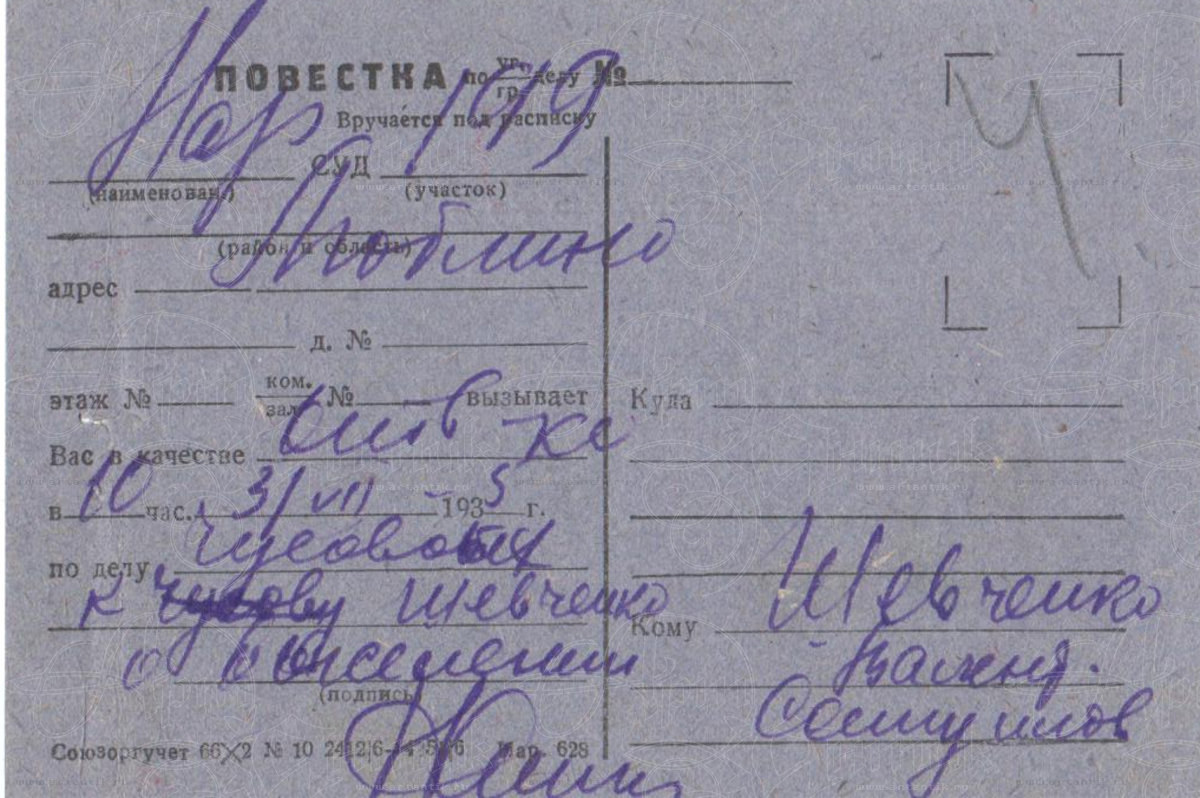 ПОВЕСТКА по уг. гр. делу №
Вручается под расписку
Нар СУД 119
(наименован.) (участок)
Люблино
(район и область)
адрес
д. №
этаж № ком. зал № вызывает
Вас в качестве
в 10 час. 31/VII 1935 г.
по делу Чусовой
к Шевченко
о выселении
(подпись)
Союзоргучет 66 2 № 10 Мар. 628
Ч
Куда
Кому Шевченко
Валент.